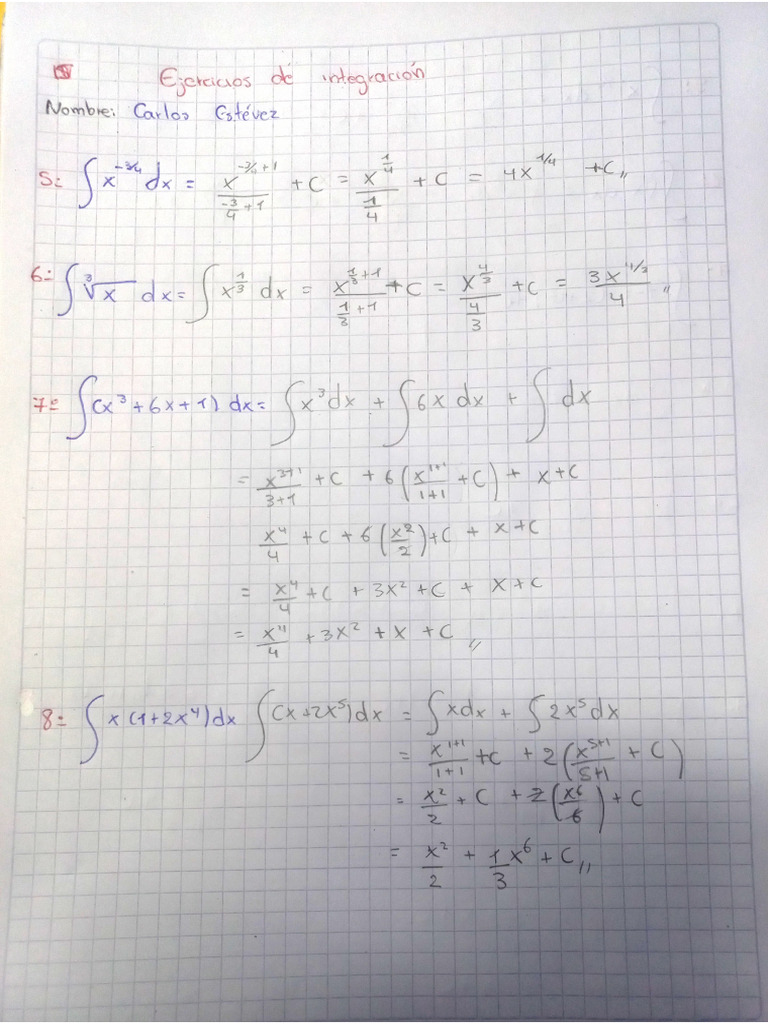 Ejercicios de integración
Nombre: Carlos Estévez
5= ∫ x^{-3/4} dx = \frac{x^{-3/4+1}}{\frac{-3}{4}+1} + C = \frac{x^{\frac{1}{4}}}{\frac{1}{4}} + C = 4x^{1/4} + C,,
6= ∫ ∛x dx = ∫ x^{\frac{1}{3}} dx = \frac{x^{\frac{1}{3}+1}}{\frac{1}{3}+1} + C = \frac{x^{\frac{4}{3}}}{\frac{4}{3}} + C = \frac{3x^{4/3}}{4},,
7= ∫(x³ + 6x + 1) dx = ∫ x³dx + ∫ 6x dx + ∫ dx
= \frac{x^{3+1}}{3+1} + C + 6(\frac{x^{1+1}}{1+1} + C) + x + C
\frac{x^4}{4} + C + 6(\frac{x^2}{2}) + C + x + C
= \frac{x^4}{4} + C + 3x² + C + x + C
= \frac{x^4}{4} + 3x² + x + C,,
8= ∫ x(1+2x⁴)dx ∫(x+2x⁵)dx = ∫xdx + ∫2x⁵dx
= \frac{x^{1+1}}{1+1} + C + 2(\frac{x^{5+1}}{5+1} + C)
= \frac{x^2}{2} + C + 2(\frac{x^6}{6}) + C
= \frac{x^2}{2} + \frac{1}{3}x⁶ + C,,